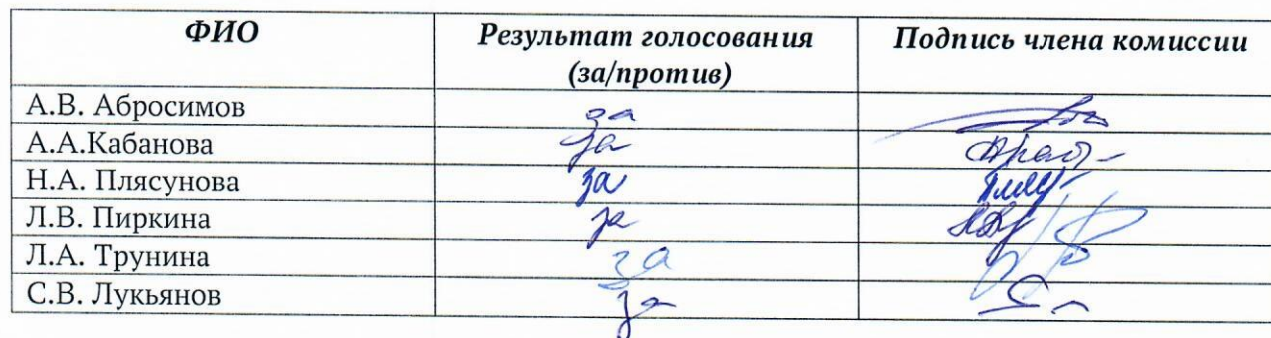 ФИО Результат голосования Подпись члена комиссии
(за/против)
А.В. Абросимов за
А.А.Кабанова за
Н.А. Плясунова за
Л.В. Пиркина за
Л.А. Трунина за
С.В. Лукьянов за